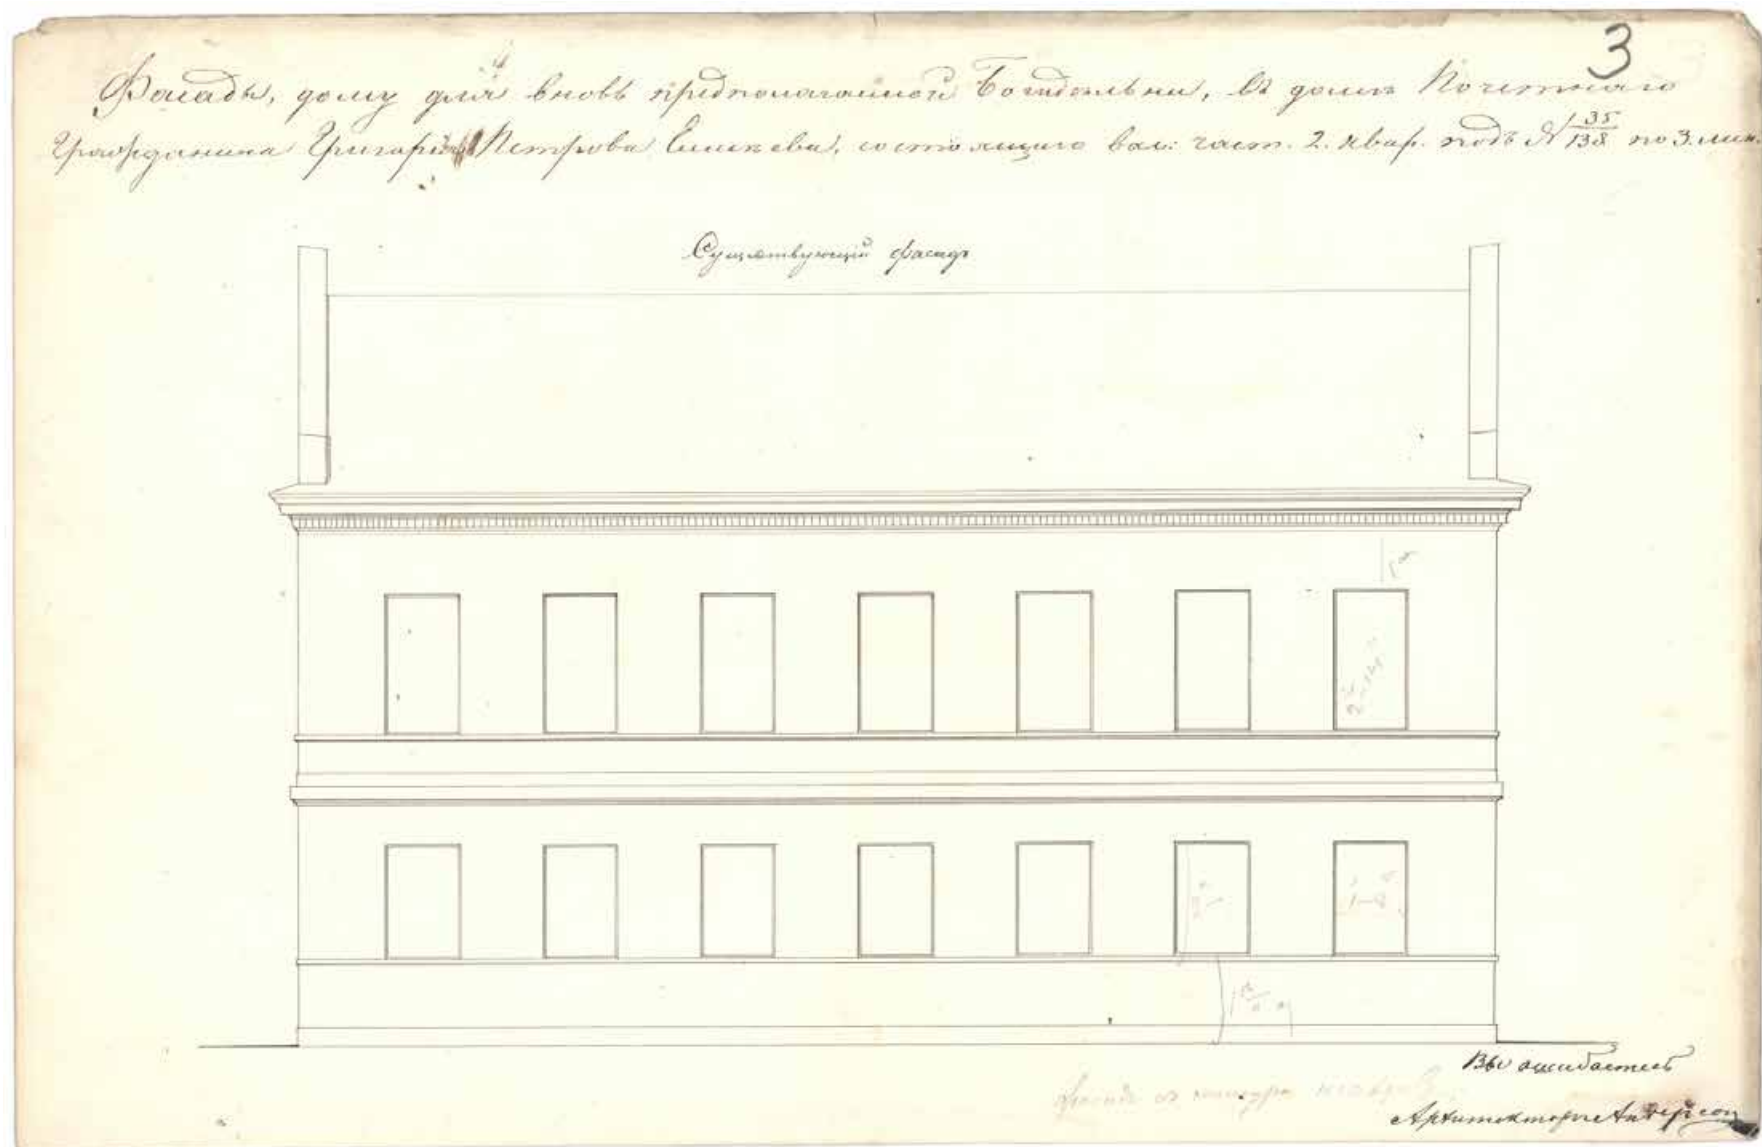 3
Фасадъ, дому для вновь предполагаемой Богадельни, въ доме Почетнаго
Гражданина Григорія Петрова Елисеева, состоящаго Вас: част. 2. квар. подъ № 35/138 по 3. лин.
Существующій фасадъ
2
1
Фасадъ съ натуры
Вы ошибаетесь
Архитекторъ Андерсон